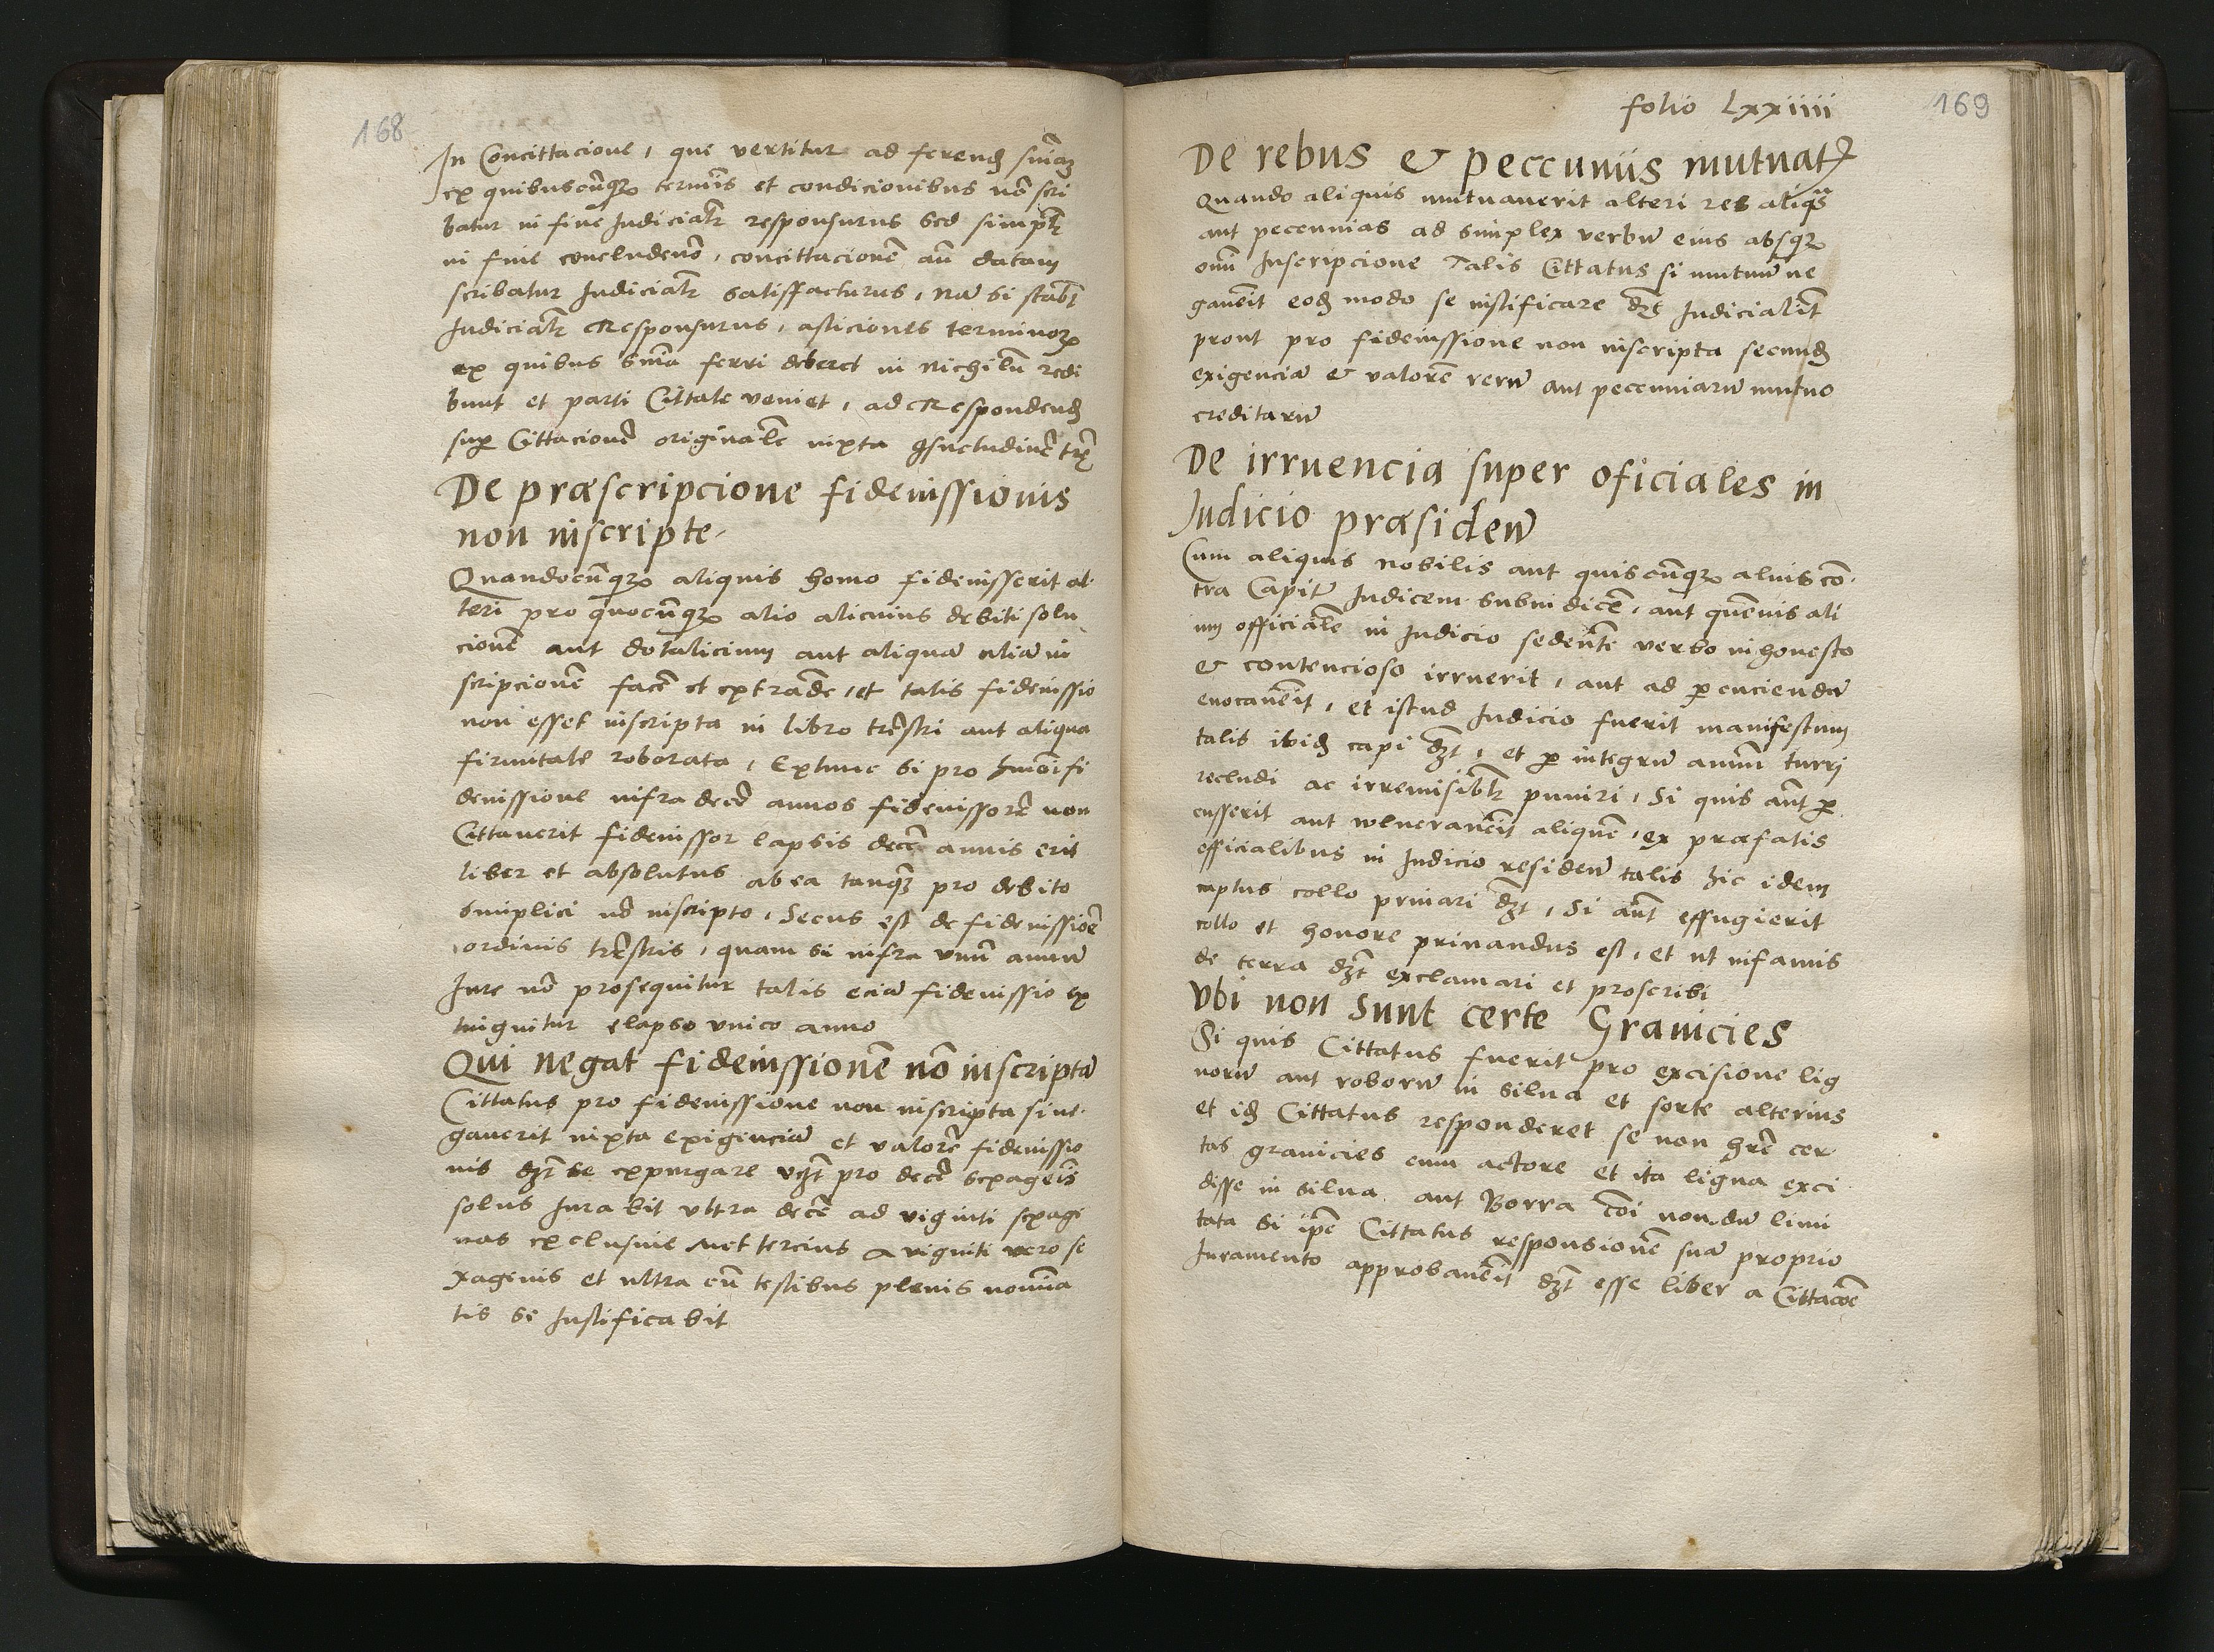 168
In Concittacione, que vertitur ad ferend͛ sn̄iaꝫ
ex quibuscūqꝫ termīs et condicionibus nō scri
batur in fine Judicialr̄ responsurus sed simpl̄r
in fine concludendo, concittacionē aūt datam
scribatur Judicialr̄ satisffacturus, na si stabt̄
Judicialr̄ Responsurus, asticiones terminoꝝ
ex quibus sn̄ia ferri deberet in nichilū redi
bunt et parti Cittate veniet, ad Respondend͛
suꝑ Cittacionē originalē iuxta ꝯsuetudinē trē
De præscripcione fideiussionis
non inscripte.
Quandocūqꝫ aliquis homo fideiusserit al
teri pro quocūqꝫ alio alicuius debiti solu
cionē aut dotalicium aut aliquā aliā in
scripcionē facē et extradē, et talis fideiussio
non esset inscripta in libro trēstri aut aliqua
firmitate roborata, Extunc si pro hmōi fi
deiussione infra decē annos fideiussorē non
Cittaverit fideiussor lapsis decē annis erit
liber et absolutus ab ea tanqꝫ pro debito
simplici nō inscripto, Secus est de fideiussiōe
ordinis trēstris, quam si infra unū annū
Jure nō prosequitur talis eciā fideiussio ex
tinguitur elapso unico anno
Qui negat fideiussionē nō inscriptā
Cittatus pro fideiussione non inscripta si ne
gaverit iuxta exigenciā et valorē fideiussio
nis dꝫt se expurgare vꝫt pro decē sexagēis
solus Jurabit ultra decē ad viginti sexagi
nas exclusive Met tercius a viginti vero se
xagenis et ultra cū testibus plenis nomīa
tis se Justificabit
folio Lxxiiii
169
De rebus & peccuniis mutuatꝭ
Quando aliquis mutuaverit alteri res aliqͣs
aut peccunias ad simplex verbū eius absqꝫ
omī Inscripcione Talis Cittatus si mutuū ne
gavēit eod͛ modo se iustificare dꝫt Judicialit̄
prout pro fideiussione non inscripta secund͛
exigenciā & valorē rerū aut peccuniarū mutuo
creditarū
De irruencia super oficiales in
Judicio præsiden̄
Cum aliquis nobilis aut quiscūqꝫ alius cō
tra Capit̄ Judicem Subiudicē, aut quēvis ali
um officialē in Judicio sedentē verbo inhonesto
& contencioso irruerit, aut ad ꝑcuciendū
evocavēit, et istud Judicio fuerit manifestum
talis ibid͛ capi dꝫt, et ꝑ integrū annū turri
recludi ac irremisiblr̄ puniri, Si quis aūt ꝑ
cusserit aut vulneravēit aliquē, ex præfatis
officialibus in Judicio residen̄ talis hic idem
captus collo privari dꝫt, Si aūt effugierit
collo et honore privandus est, et ut infamis
de terra dꝫt exclamari et proscribi
Ubi non sunt certe Granicies
Si quis Cittatus fuerit pro excisione lig
norū aut roborū in silva et sorte alterius
et id͛ Cittatus responderet se non hr̄e cer
tas granicies cum actore et ita ligna exci
disse in silva aut Borra cōi nondū limi
tata si ip̄e Cittatus responsionē suā proprio
Juramento approbavēit dꝫt esse liber a Cittacōe